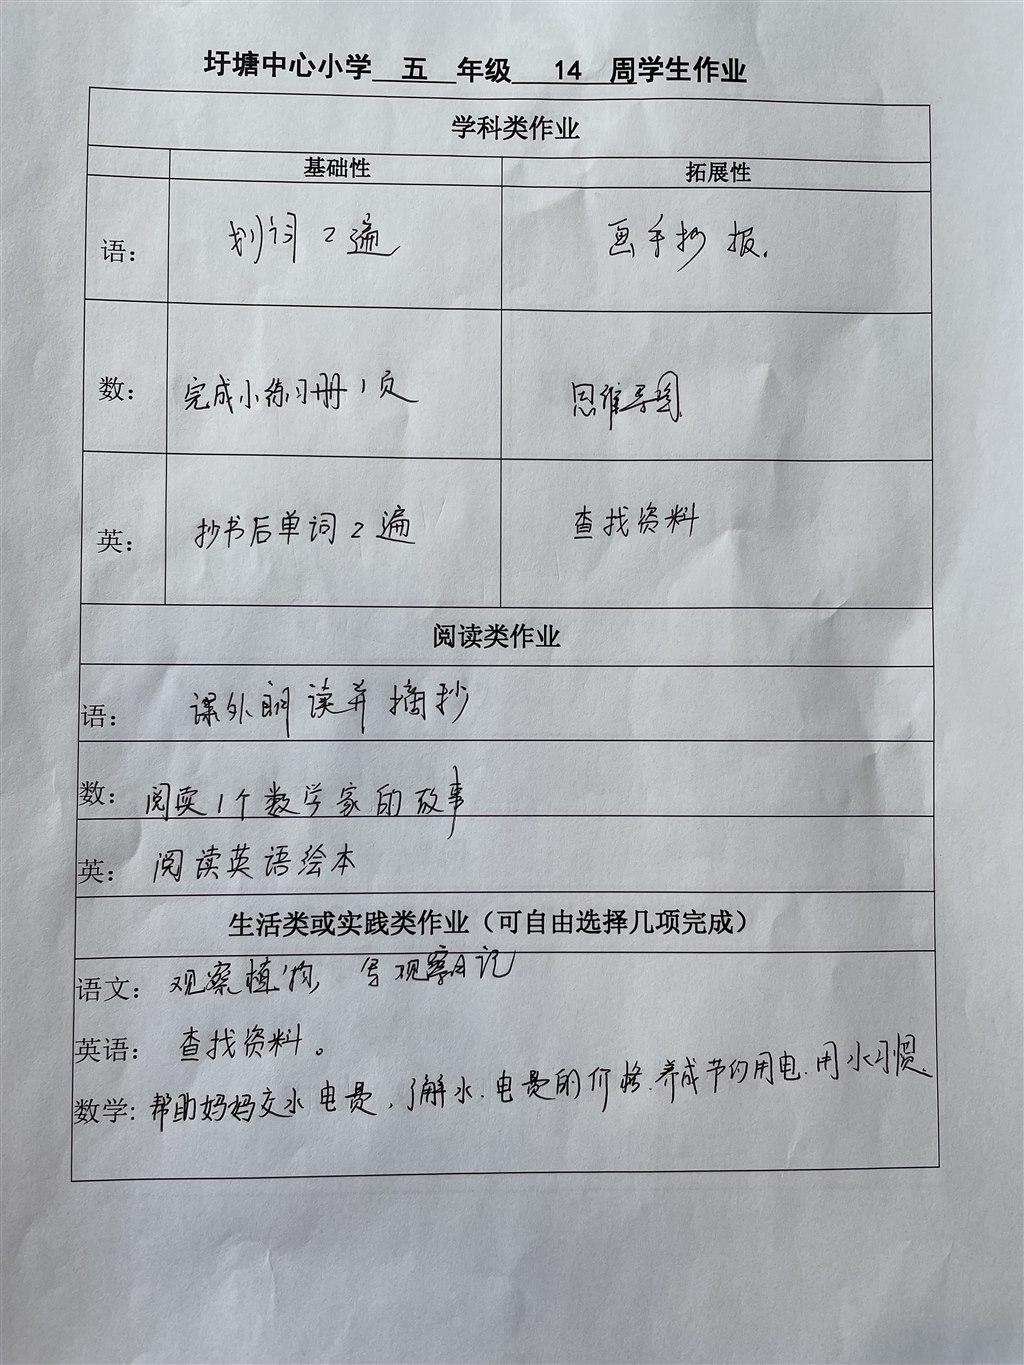 圩塘中心小学 五 年级 14 周学生作业
学科类作业
基础性 拓展性
语： 划词2遍 画手抄报.
数： 完成小练习册1页 思维导图
英： 抄书后单词2遍 查找资料
阅读类作业
语： 课外朗读并摘抄
数： 阅读1个数学家的故事
英： 阅读英语绘本
生活类或实践类作业（可自由选择几项完成）
语文： 观察植物, 写观察日记
英语： 查找资料。
数学: 帮助妈妈交水电费, 了解水.电费的价格.养成节约用电.用水习惯.